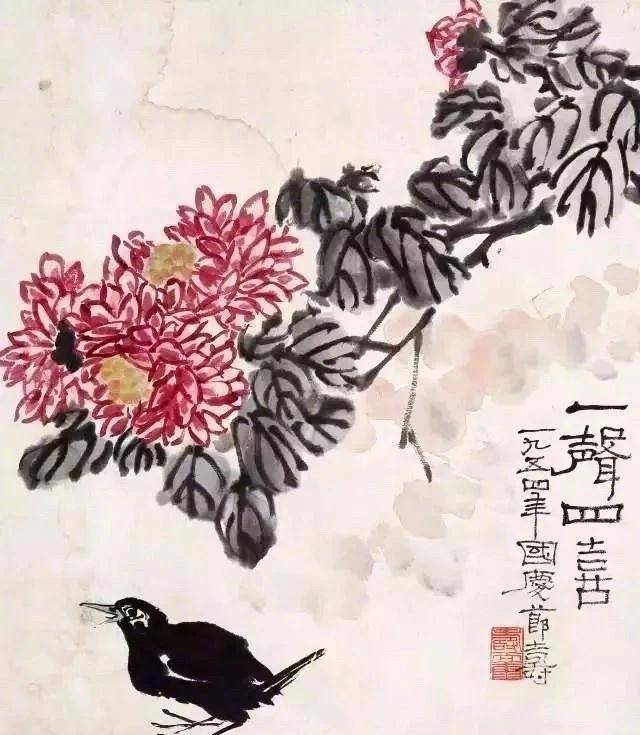 一聲四
一九五四年國慶節壽